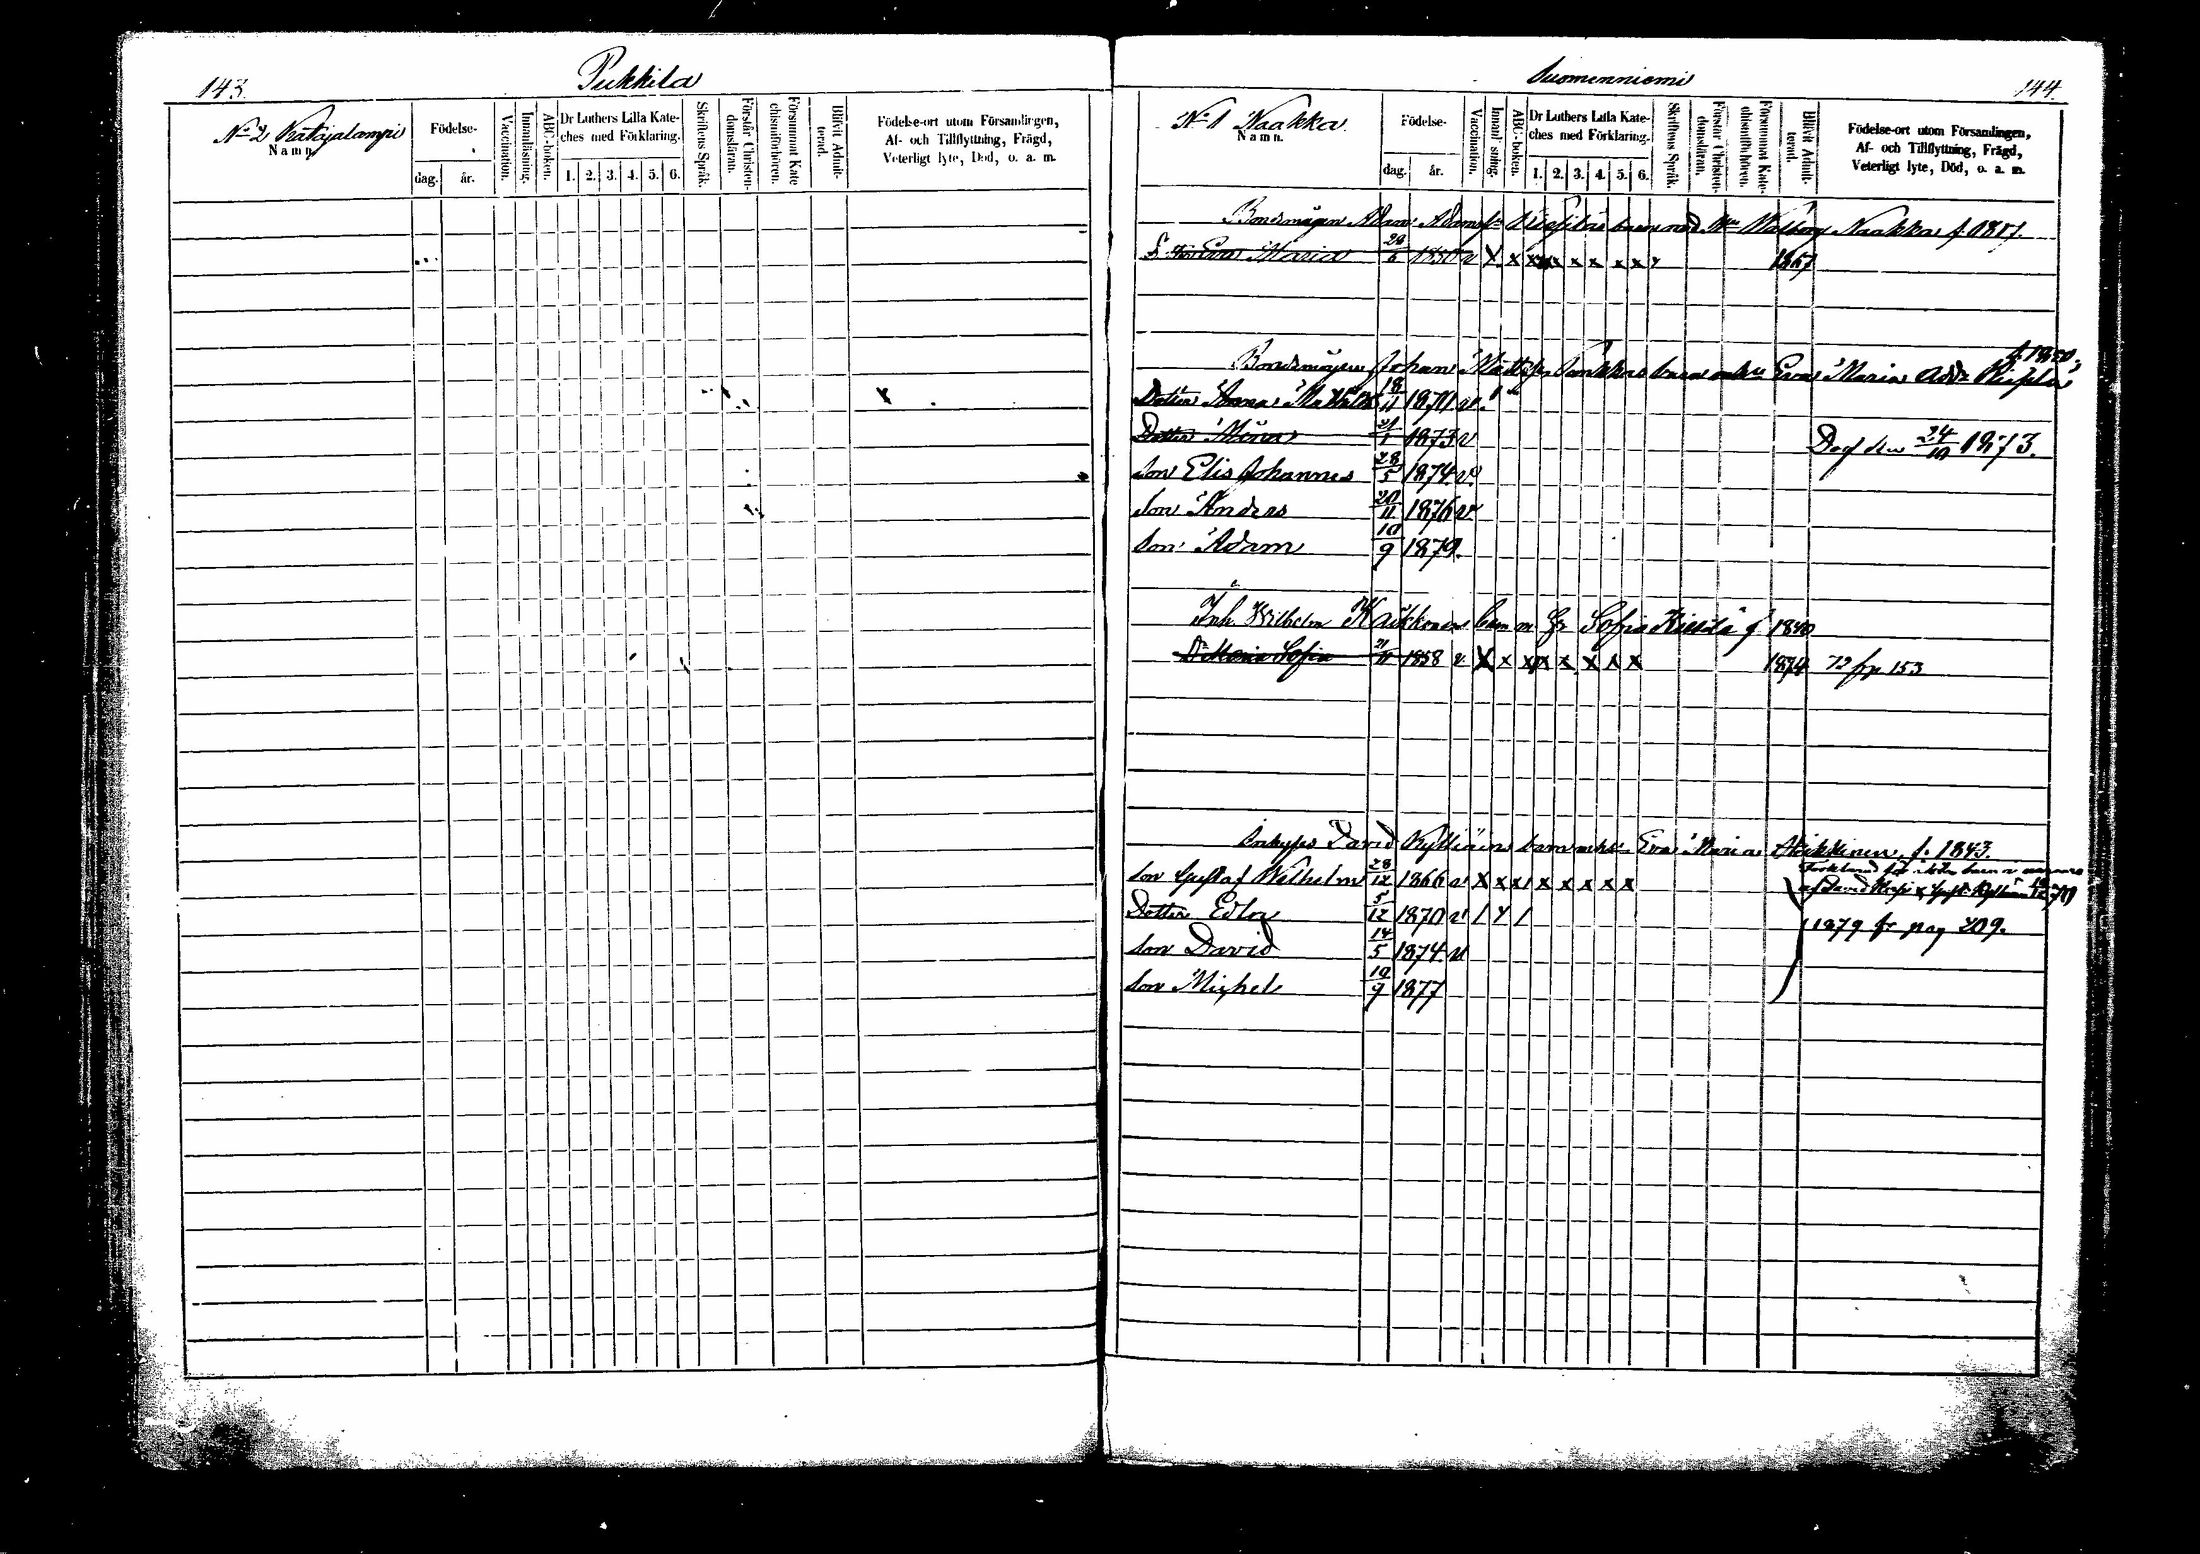 143.
Pukkila
No 2 Katajalampi
Namn.
Födelse-
dag.
år.
Vaccination.
Innanläsning.
ABC-boken.
Dr Luthers Lilla Kate-
ches med Förklaring.
1. 2. 3. 4. 5. 6.
Skriftens Språk.
Förstår Christen-
domsläran.
Försummat Kate
chismiförhören.
Blifvit Admit-
terad.
Födelse-ort utom Församlingen,
Af- och Tillflyttning, Frägd,
Veterligt lyte, Död, o. a. m.
Suomenniemi
144.
No 1 Naakka.
Namn.
Födelse-
dag.
år.
Vaccination.
Innanläsning.
ABC-boken.
Dr Luthers Lilla Kate-
ches med Förklaring.
1. 2. 3. 4. 5. 6.
Skriftens Språk.
Förstår Christen-
domsläran.
Försummat Kate-
chismiförhören.
Blifvit Admit-
terad.
Födelse-ort utom Församlingen,
Af- och Tillflyttning, Frägd,
Veterligt lyte, Död, o. a. m.
Bondsmågen Adam Adamss barn med Walborg Naakka f. 1817.
Eva Maria 6 1850 v X x x x x x x x 1867
f. 1850
Bondsmågen Johan Mattss Pankkos barn Eva Maria Adds
Dotter Anna Mathilda 18/11 1870 v.
Dotter Mina 21/1 1873 v Död den 24/10 1873.
Son Elis Johannes 28/5 1874 v.
Son Anders 20/11 1876 v
Son Adam 10/9 1879.
Inh. Wilhelm Kaikkonens barn m. Sofia f 1840
D. Maria Sofia 1858 v X x x x x x x x 1874 72 fr p. 153
David Kylliäins barn Eva Maria f. 1843.
Son Gustaf Wilhelm 28/12 1866 v X x x x x x x x
Dotter Edla 5/12 1870 v / Y /
1879 fr pag 209.
Son David 14/5 1874 v
Son Michel 10/9 1877